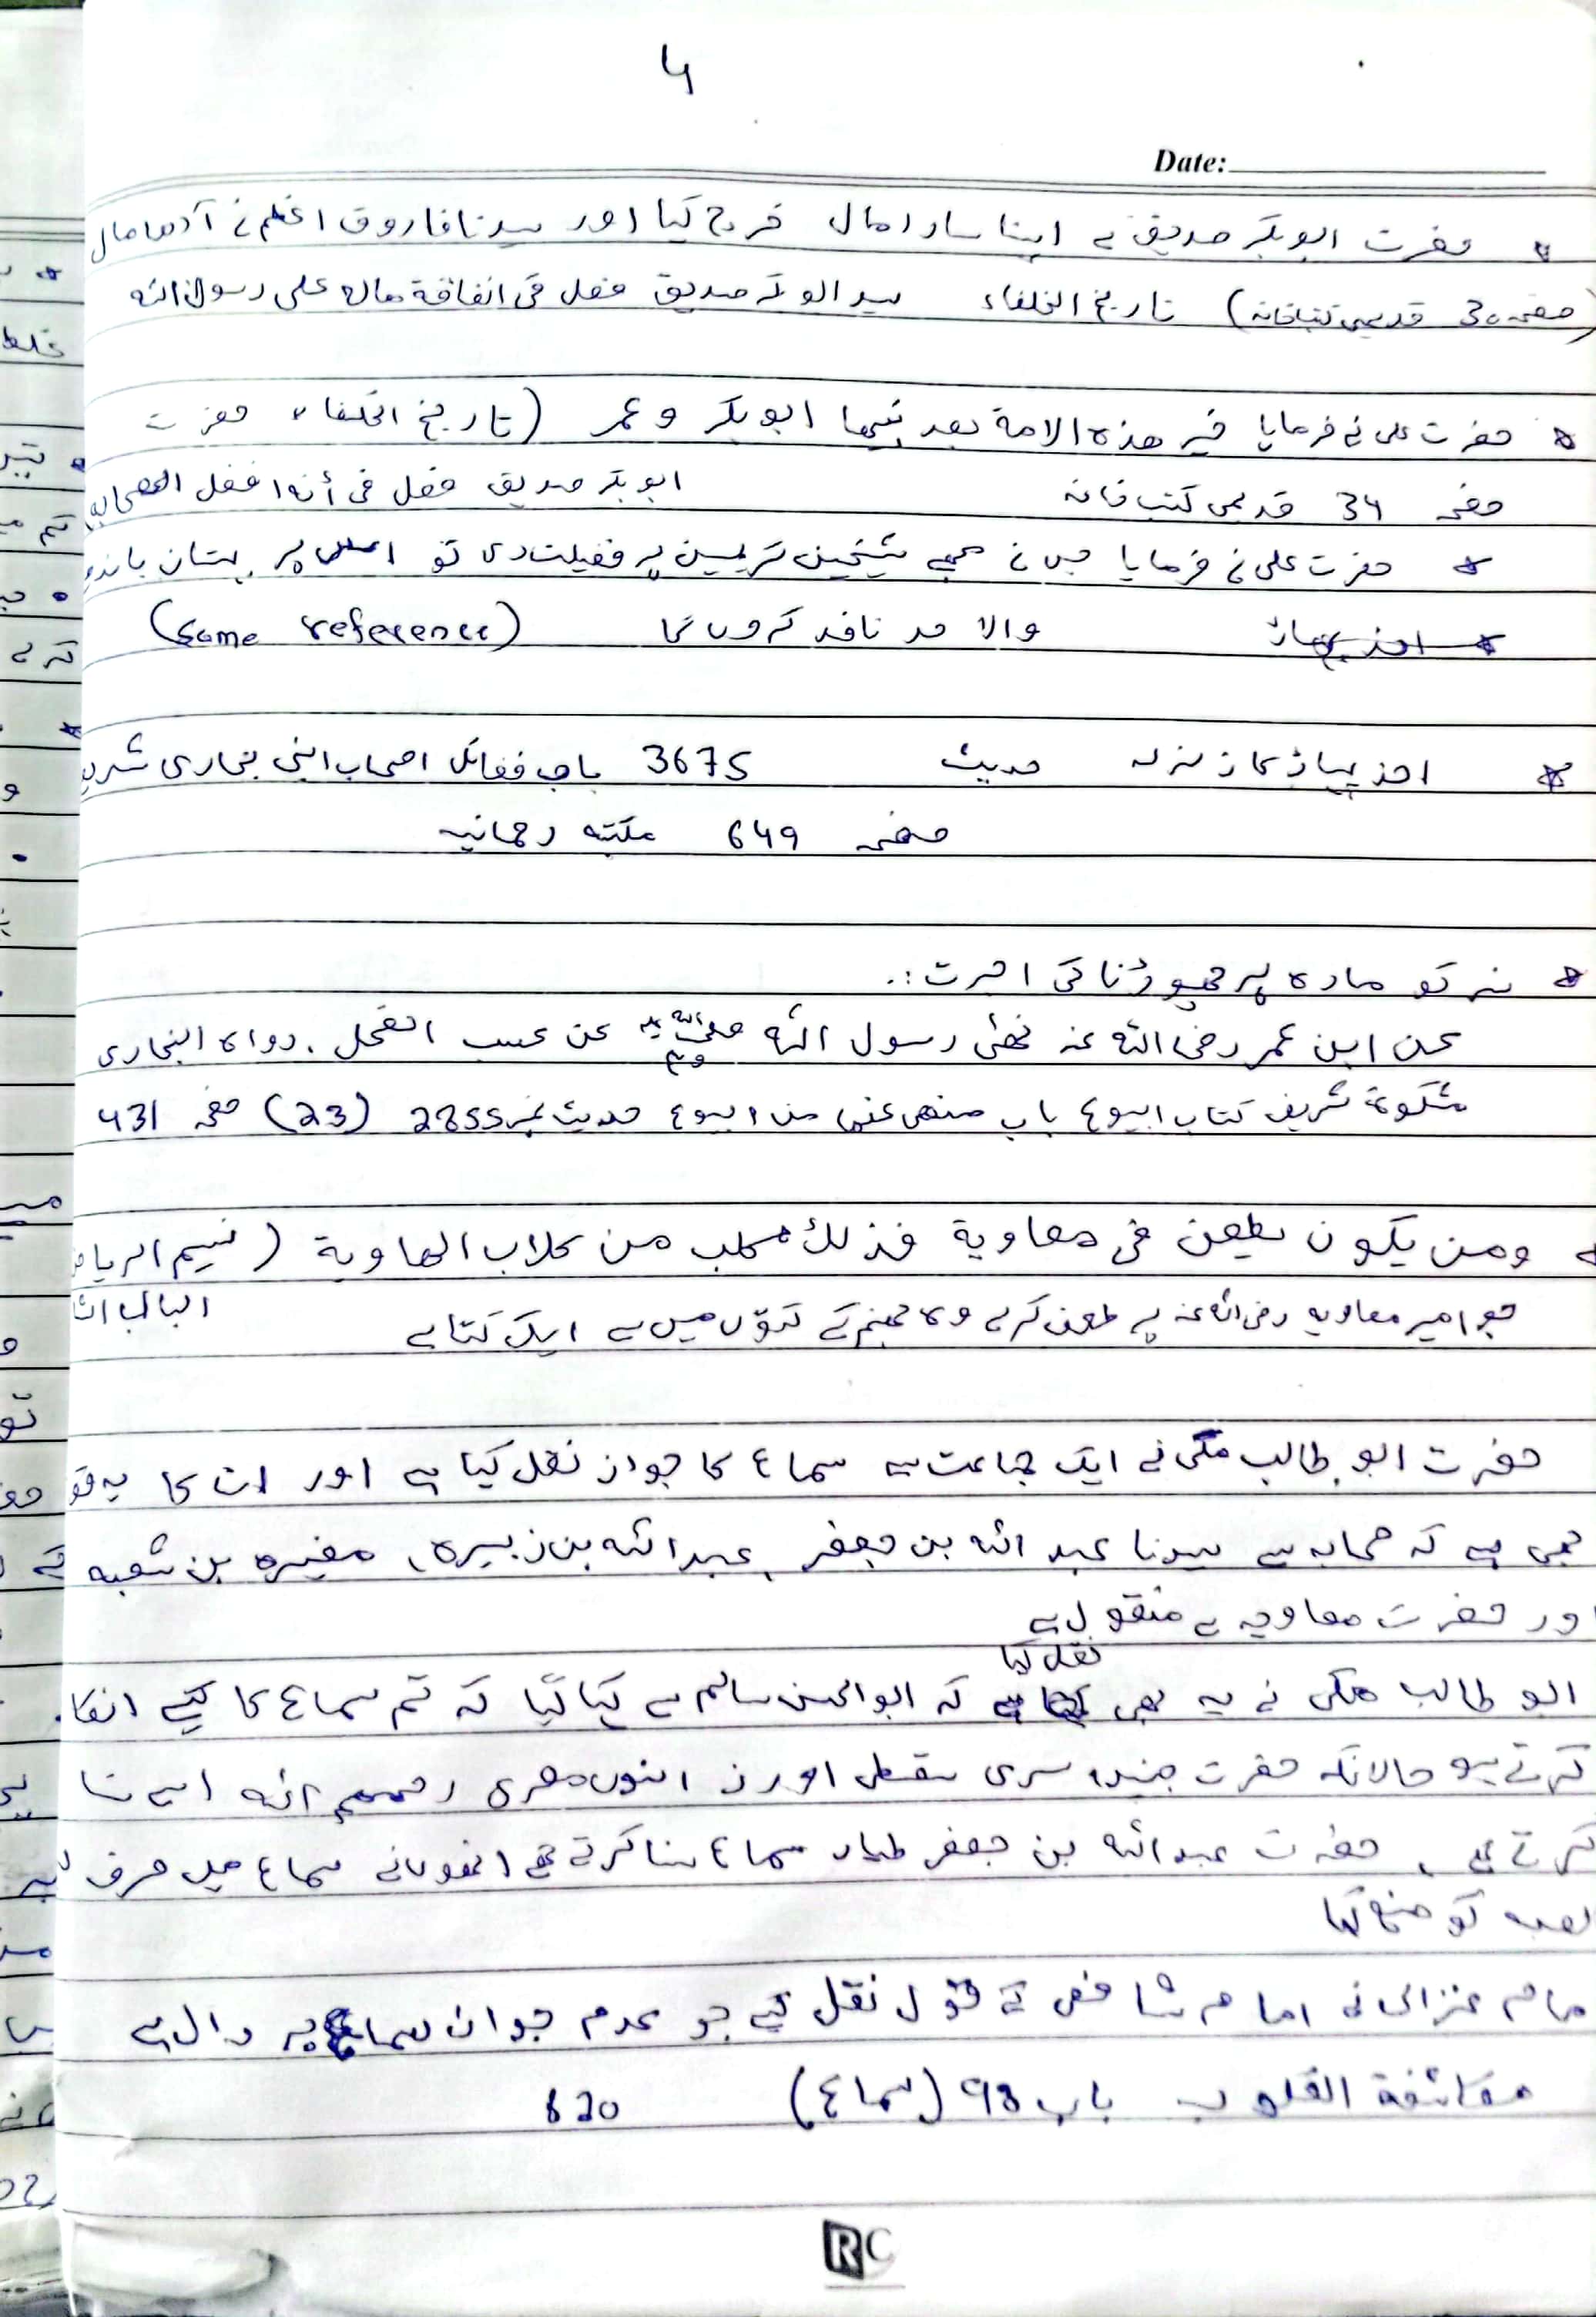 4
Date:
* حضرت ابوبکر صدیق نے اپنا سارا مال خرچ کیا اور سیدنا فاروق اعظم نے آدھا مال
(صفحہ 30 قدیمی کتب خانہ) تاریخ الخلفاء سید ابوبکر صدیق فصل فی انفاقہ مالہ علی رسول اللہ
* حضرت علی نے فرمایا خیر هذه الامة بعد نبیها ابوبکر و عمر (تاریخ الخلفاء حضرت
صفحہ 34 قدیمی کتب خانہ ابوبکر صدیق فصل فی أنه افضل الصحابہ
* حضرت علی نے فرمایا جس نے مجھے شیخین کریمین پر فضیلت دی تو اس پر بہتان باندھنے
والا حد نافذ کروں گا (Same reference)
* احد پہاڑ کا زلزلہ حدیث 3675 باب فضائل اصحاب النبی بخاری شریف
صفحہ 649 مکتبہ رحمانیہ
* نر کو مادہ پر چھوڑنا کی اجرت :.
عن ابن عمر رضی اللہ عنہ نھی رسول اللہ صلی اللہ علیہ وسلم عن عسب الفحل . رواہ البخاری
مشکوۃ شریف کتاب البیوع باب منھی عنھا من البیوع حدیث نمبر 2855 (23) صفحہ 431
ومن یکون یطعن فی معاویة فذلك کلب من کلاب الهاویة (نسیم الریاض
جو امیر معاویہ رضی اللہ عنہ پر طعن کرے وہ جہنم کے کتوں میں سے ایک کتا ہے الباب
حضرت ابو طالب مکی نے ایک جماعت سے سماع کا جواز نقل کیا ہے اور ان کا یہ قول
بھی ہے کہ صحابہ سے سیدنا عبد اللہ بن جعفر، عبد اللہ بن زبیر، مغیرہ بن شعبہ
اور حضرت معاویہ سے منقول ہے
نقل کیا
ابو طالب مکی نے یہ بھی ہے کہ ابوالحسن سالم سے کہا گیا کہ تم سماع کا کیسے انکار
کرتے ہو حالانکہ حضرت جنید، سری سقطی اور ذوالنون مصری رحمہم اللہ اسے سنا
کرتے تھے، حضرت عبد اللہ بن جعفر طیار سماع سنا کرتے تھے انھوں نے سماع میں صرف لہو
لعب کو منع کیا
امام غزالی نے امام شافعی کے قول نقل کیے جو عدم جواز سماع پر دال ہے
مکاشفة القلوب باب 98 (سماع) 620
RC